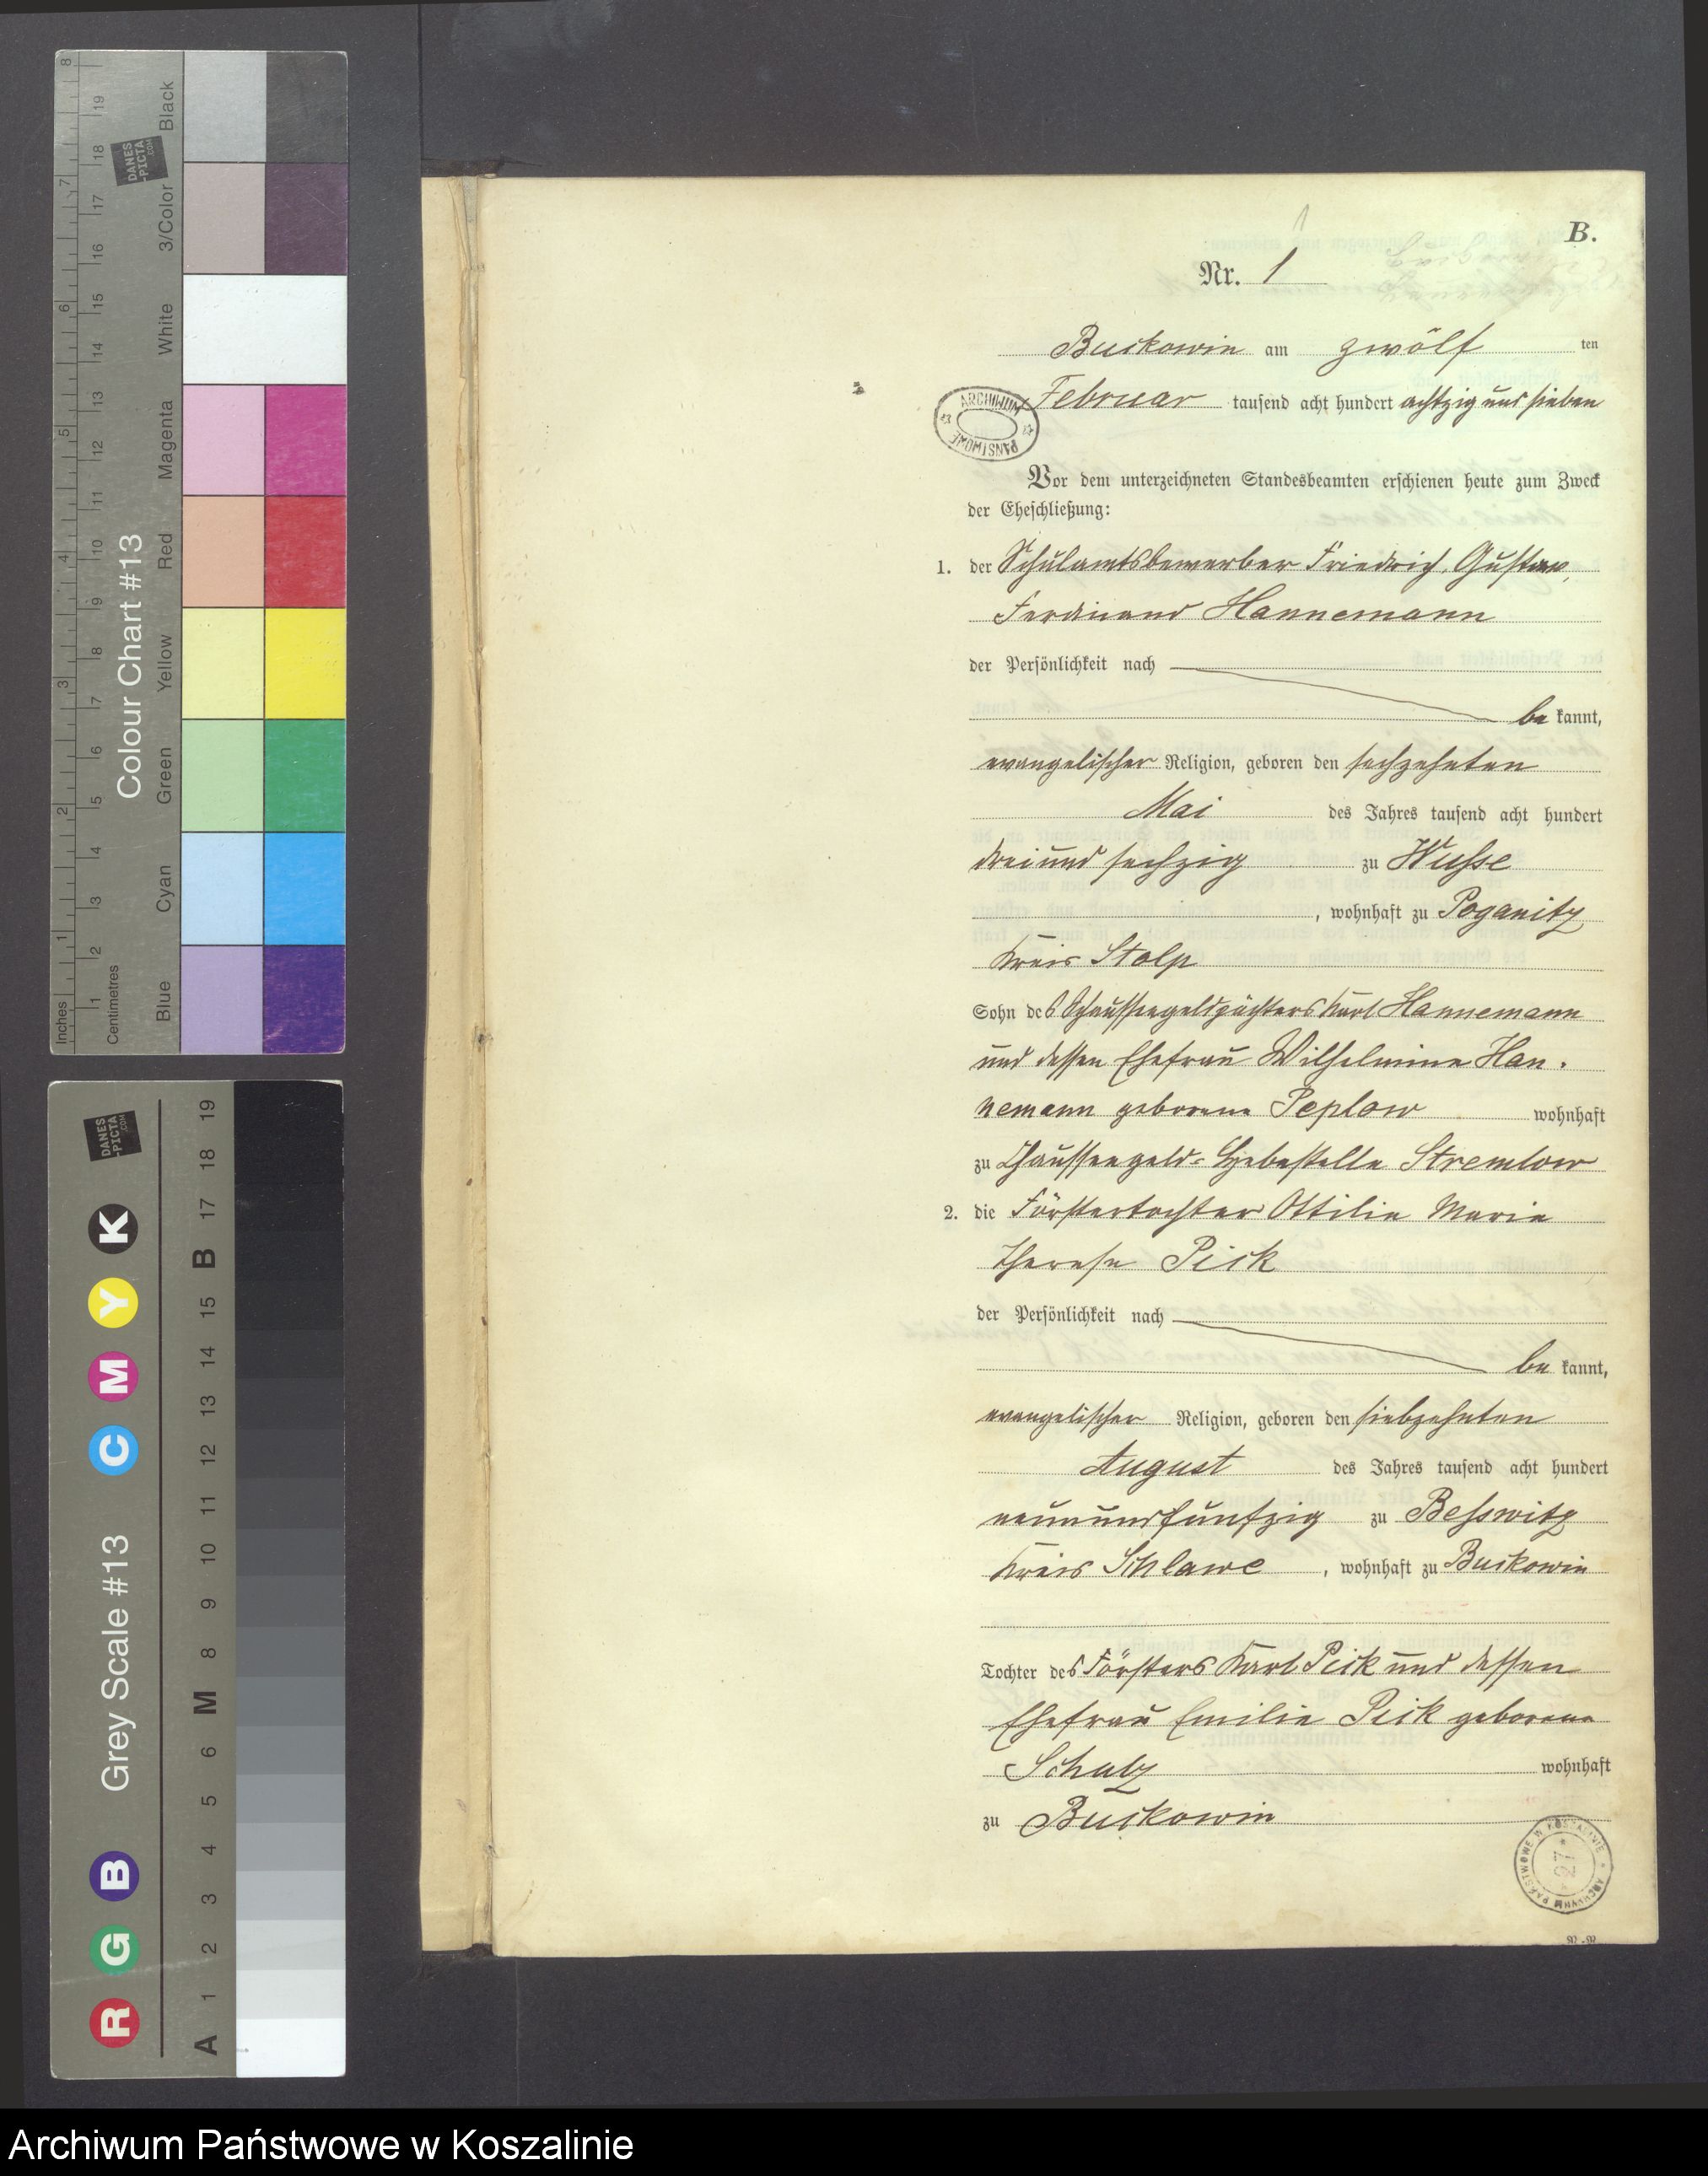 B.
Nr. 1
Buckowin am zwölf ten
Februar tausend acht hundert achtzig und sieben
Vor dem unterzeichneten Standesbeamten erschienen heute zum Zweck
der Eheschließung:
1. der Schulamtsbewerber Friedrich, Gustav,
Ferdinand Hannemann
der Persönlichkeit nach
be kannt,
evangelischer Religion, geboren den sechzehnten
Mai des Jahres tausend acht hundert
dreiund sechzig zu Wusse
, wohnhaft zu Poganitz
Kreis Stolp
Sohn des Chausseegeldpächters Karl Hannemann
und dessen Ehefrau Wilhelmine Han-
nemann geborene Peplow wohnhaft
zu Chausseegeld-Hebestelle Stremlow
2. die Förstertochter Ottilie Marie
Therese Pick
der Persönlichkeit nach
be kannt,
evangelischer Religion, geboren den siebzehnten
August des Jahres tausend acht hundert
neunundfünfzig zu Besswitz
Kreis Schlawe, wohnhaft zu Buckowin
Tochter des Försters Karl Pick und dessen
Ehefrau Emilie Pick geborene
Schulz wohnhaft
zu Buckowin
ARCHIWUM PAŃSTWOWE
ARCHIWUM PAŃSTWOWE W KOSZALINIE
27
Colour Chart #13
Inches
Centimetres
Blue Cyan Green Yellow Red Magenta White 3/Color Black
DANES
-PICTA
.COM
Grey Scale #13
R G B C M Y K
A 1 2 3 4 5 6 M 8 9 10 11 12 13 14 15 B 17 18 19
Archiwum Państwowe w Koszalinie